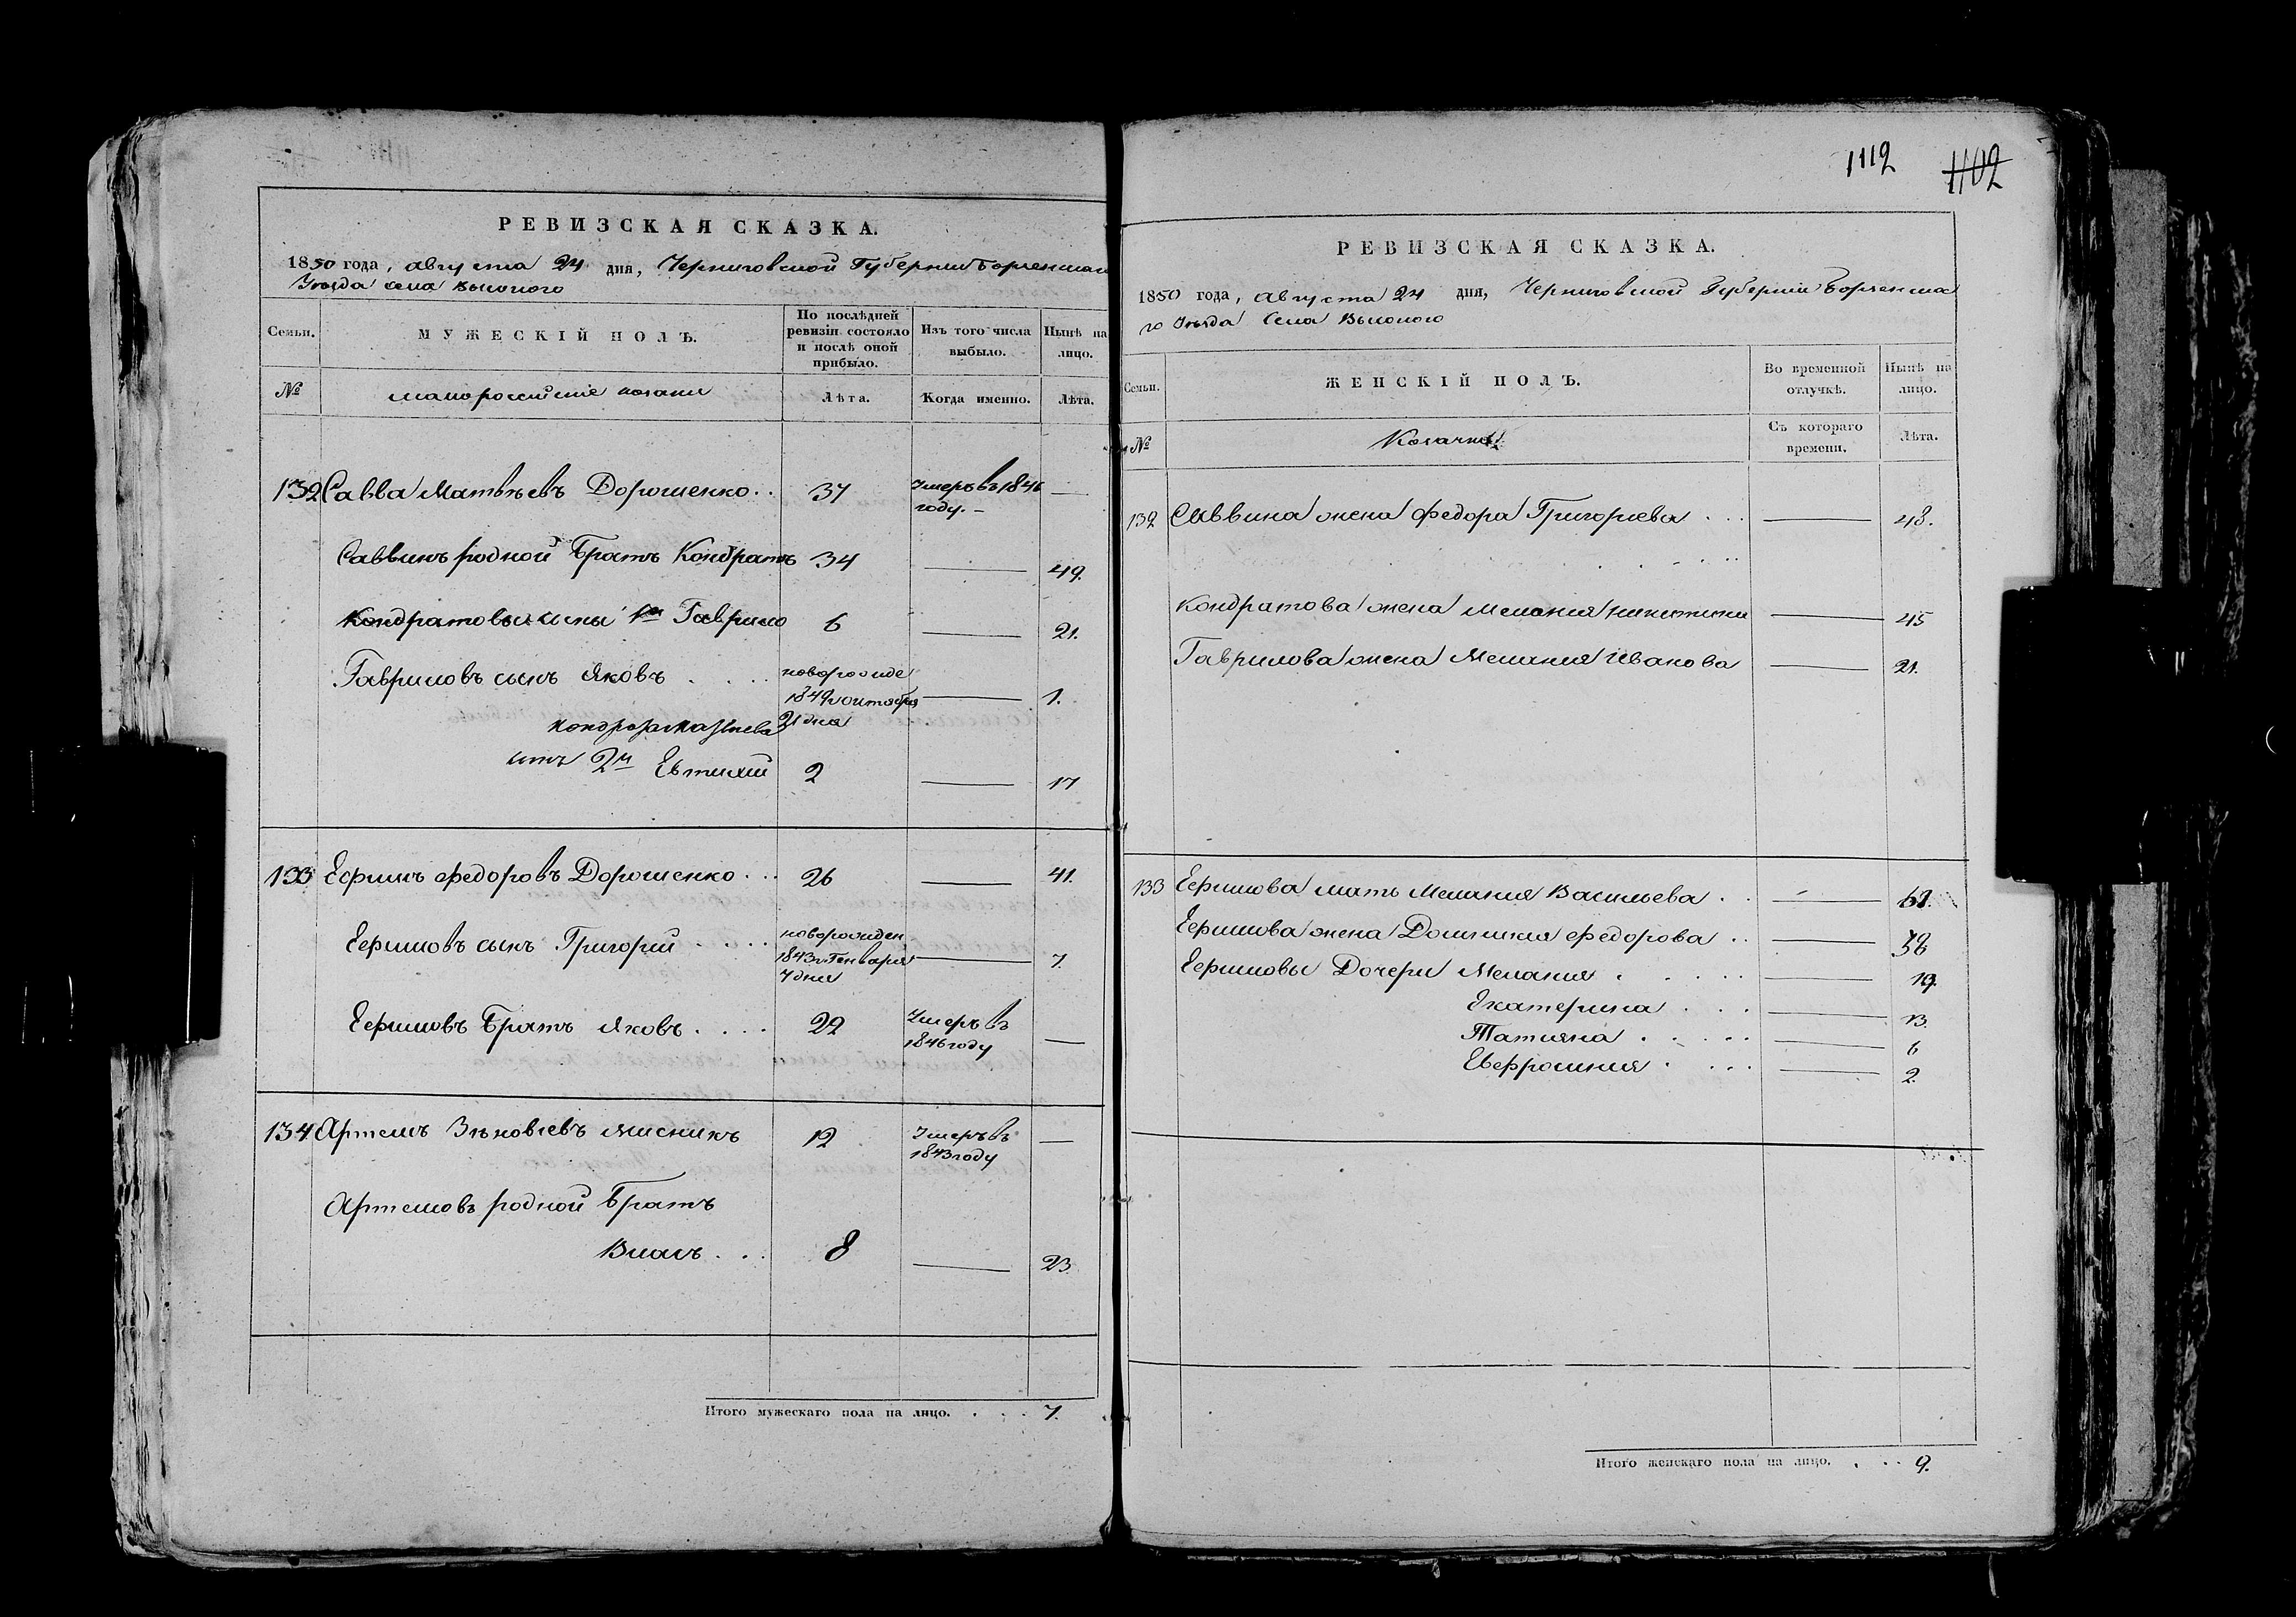 РЕВИЗСКАЯ СКАЗКА.
1850 года, августа 24 дня, Черниговской Губернии Борзенскаго
Уезда села Высокого
Семьи.
МУЖЕСКІЙ ПОЛЪ.
По послѣдней ревизіи состояло и послѣ оной прибыло.
Изъ того числа выбыло.
Нынѣ на лицо.
№
малороссийские козаки
Лѣта.
Когда именно.
Лѣта.
132 Савва Матвѣевъ Дорошенко . . 37 Умеръ въ 1846 году. —
Саввинъ родной Братъ Кондратъ 34 — 49.
Кондратовы сыны 1й Гаврило 6 — 21.
Гавриловъ сынъ Яковъ . . . . новорожде 1849 октября 21 дня — 1.
Кондрата Матвеева
сынъ 2й Евтихий 2 — 17
133 Ефимъ Федоровъ Дорошенко . . . 26 — 41.
Ефимовъ сынъ Григорий . . . . новорожден 1843 г. Генваря 7 дня — 7.
Ефимовъ Братъ Яковъ . . . . 22 Умеръ въ 1846 году —
134 Артемъ Зѣновіевъ Мисникъ 12 Умеръ въ 1843 году —
Артемовъ родной Братъ
Власъ . . . 8 — 23
Итого мужескаго пола на лицо. . . . 7.
1112 1102
РЕВИЗСКАЯ СКАЗКА.
1850 года, августа 24 дня, Черниговской Губернии Борзенска
го Уѣзда Села Высокого
Семьи.
ЖЕНСКІЙ ПОЛЪ.
Во временной отлучкѣ.
Нынѣ на лицо.
№
Козачки
Съ котораго времени.
Лѣта.
132 Саввина жена Федора Григориева . . . — 48.
Кондратова жена Мелания Никитина — 45
Гаврилова жена Мелания Иванова — 21.
133 Ефимова мать Мелания Васильева . . —
Ефимова жена Домникия Федорова . . — 38
Ефимовы Дочери Мелания . . . . . — 19.
Екатерина . . . — 13.
Татияна . . . . . — 6
Евфросиния . . . . — 2.
Итого женскаго пола на лицо. . . . 9.